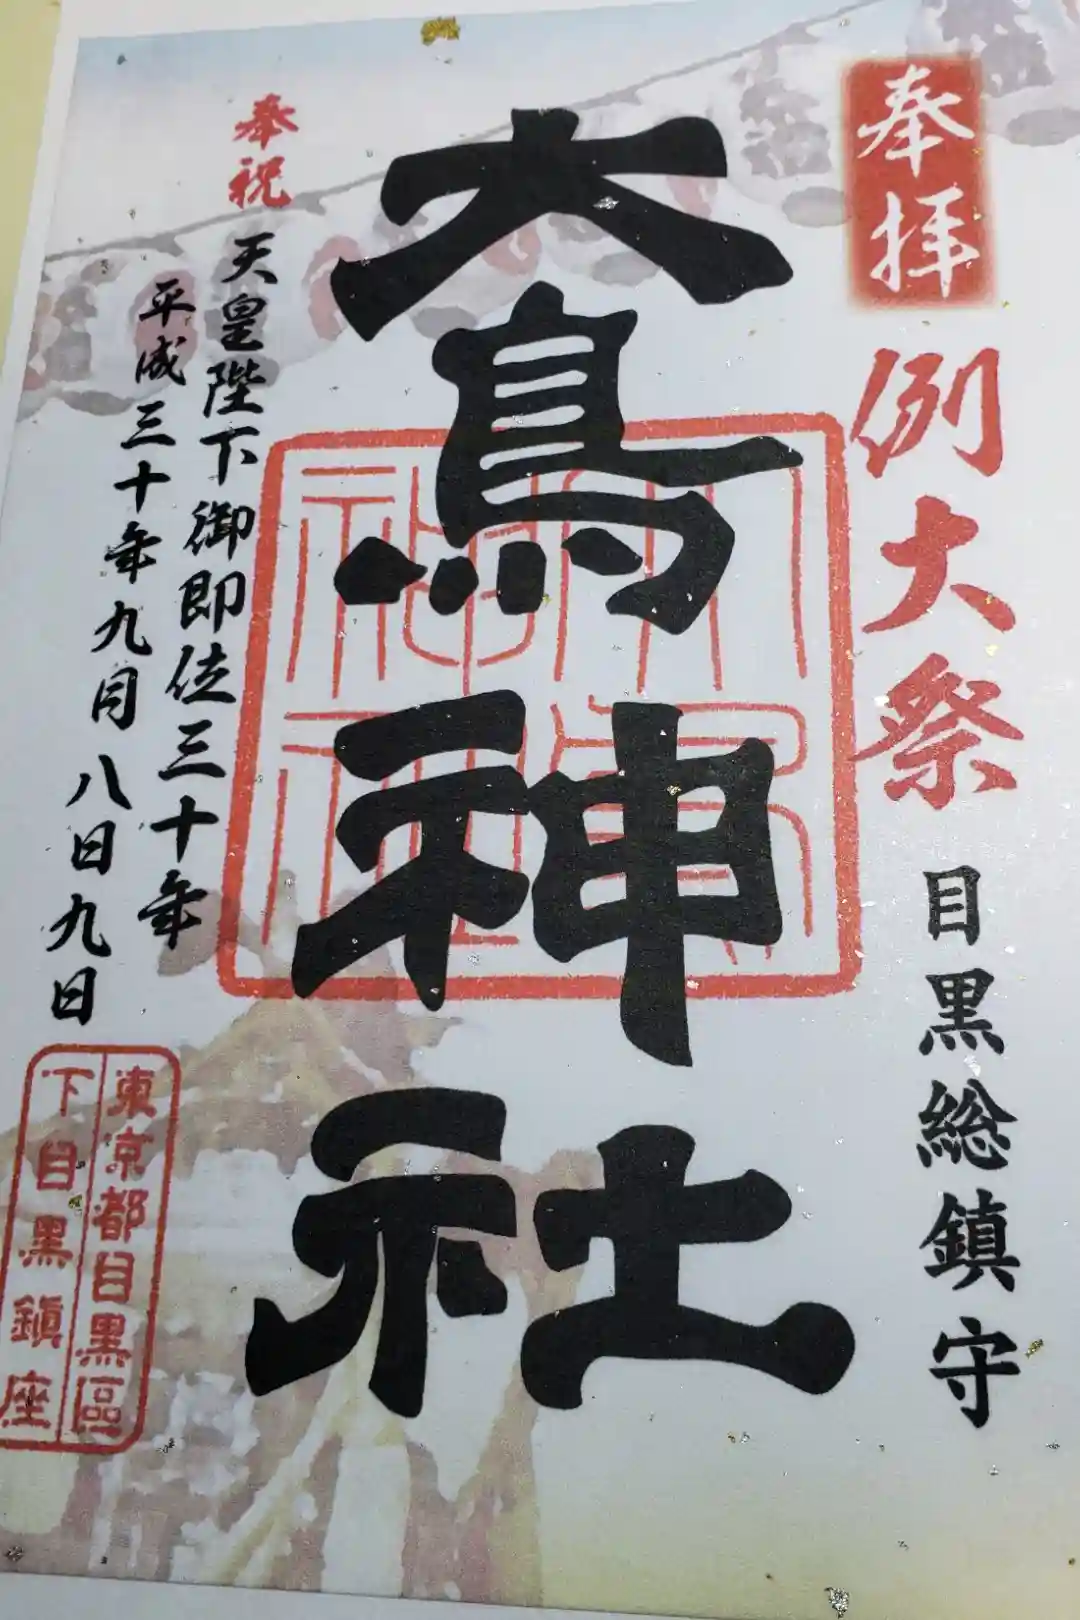 奉拝
例大祭
目黒総鎮守
大鳥神社
奉祝
天皇陛下御即位三十年
平成三十年九月八日九日
東京都目黒區
下目黒鎭座